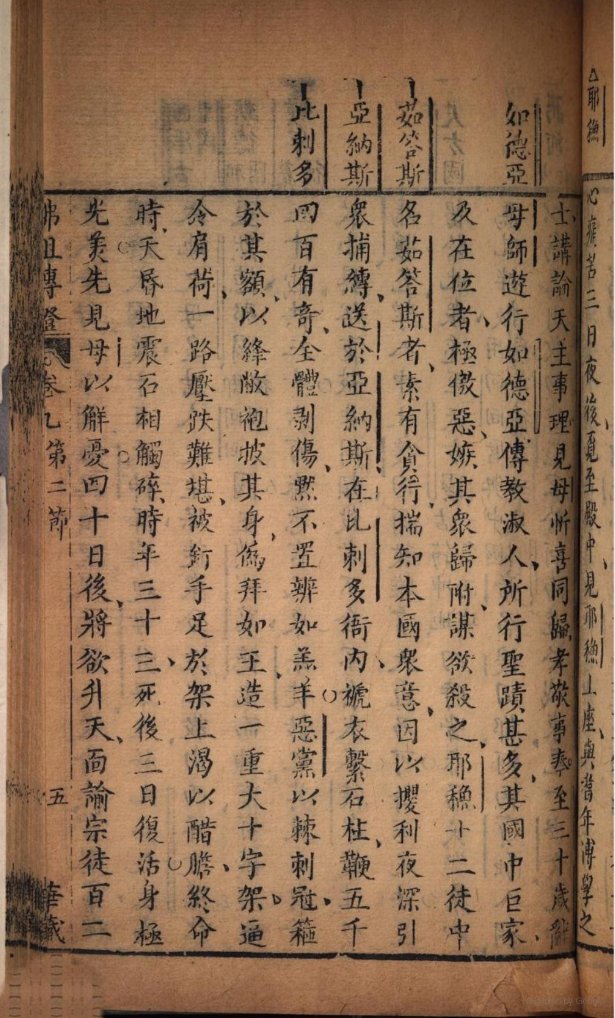 耶穌
心痛苦三日夜後覓至殿中見耶穌上座與耆年博學之
士講論天主事理見母忻喜同歸孝敬事奉至三十歲辭
如德亞
母師遊行如德亞傳教淑人所行聖蹟甚多其國中巨家
及在位者極傲惡嫉其眾歸附謀欲殺之耶穌十二徒中
茹答斯
名茹答斯者素有貪行揣知本國眾意因以攫利夜深引
亞納斯
眾捕縛送於亞納斯在比剌多衙內褫衣繫石柱鞭五千
比剌多
四百有奇全體剝傷默不置辨如羔羊惡黨以棘刺冠箍
於其額以絳敝袍披其身偽拜如王造一重大十字架逼
令肩荷一路壓跌難堪被釘手足於架上渴以醋膽終命
時天昏地震石相觸碎時年三十三死後三日復活身極
光美先見母以解憂四十日後將欲升天面諭宗徒百二
卷九第二節
五